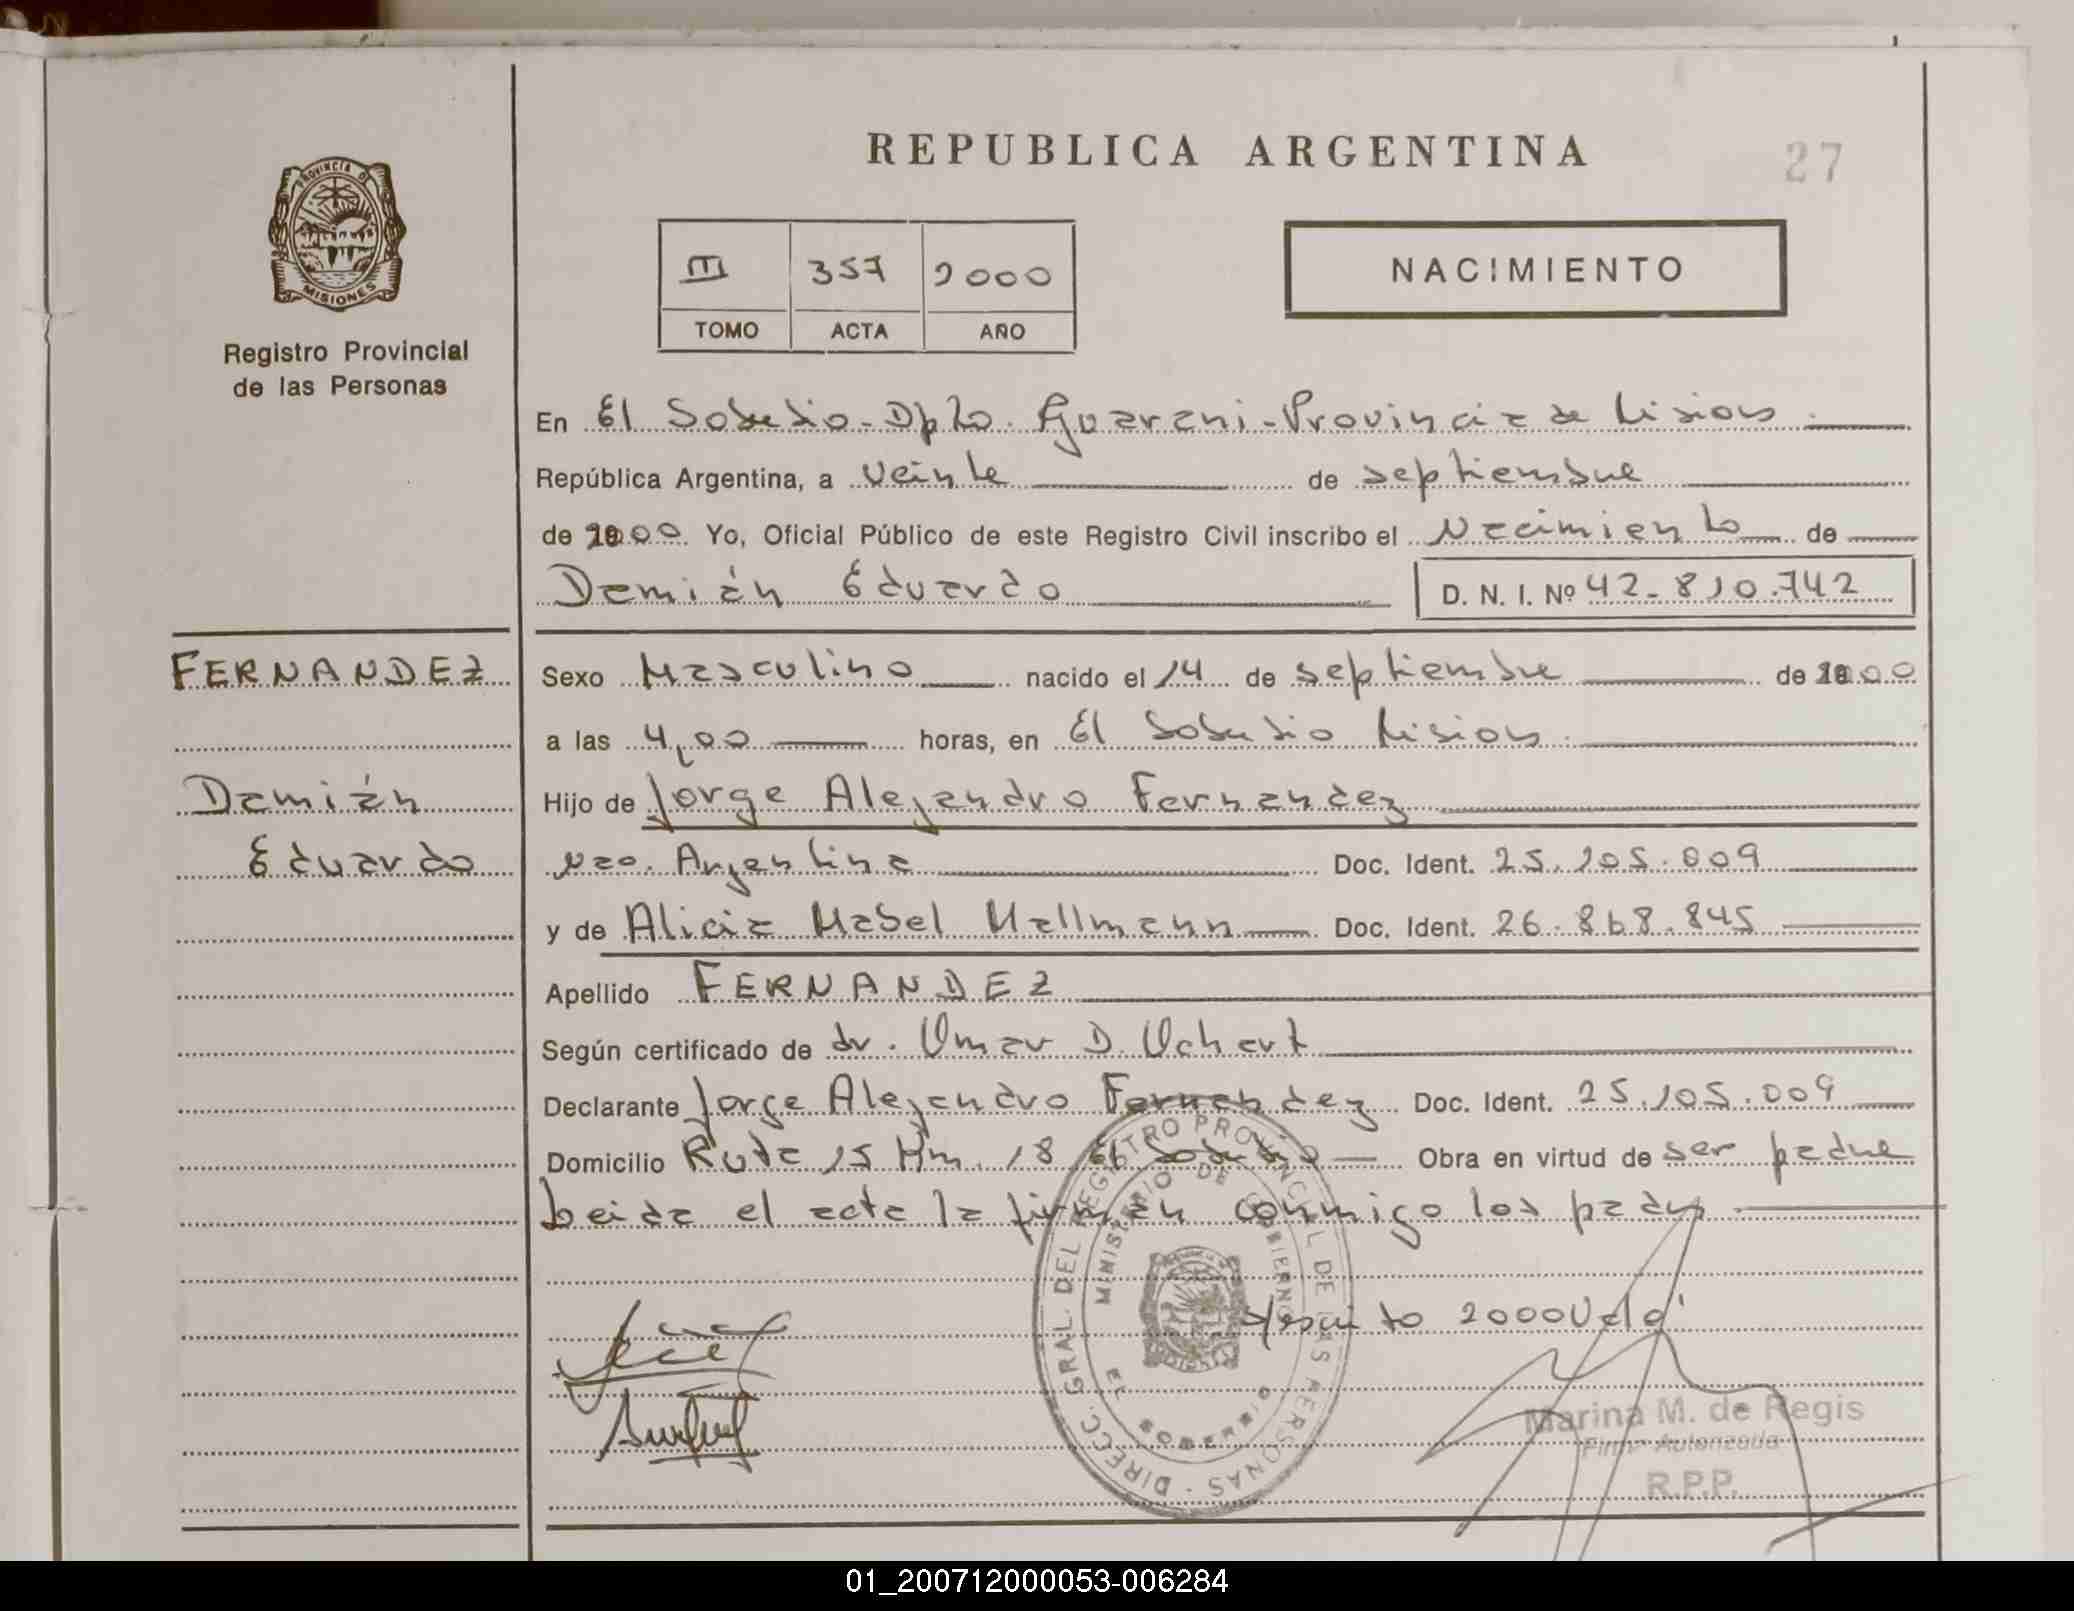 REPUBLICA ARGENTINA
27
PROVINCIA DE
MISIONES
Registro Provincial
de las Personas
III 357 2000
TOMO ACTA AÑO
NACIMIENTO
En El Soberbio - Dpto. Guarani - Provincia de Misiones
República Argentina, a veinte de septiembre
de 2000 Yo, Oficial Público de este Registro Civil inscribo el Nacimiento de
Demián Eduardo D. N. I. Nº 42.810.742
FERNANDEZ
Demián
Eduardo
Sexo Masculino nacido el 14 de septiembre de 2000
a las 4,00 horas, en El Soberbio Misiones
Hijo de Jorge Alejandro Fernandez
nac. Argentina Doc. Ident. 25.105.009
y de Alicia Mabel Mallmann Doc. Ident. 26.868.845
Apellido FERNANDEZ
Según certificado de dr. Omar D.
Declarante Jorge Alejandro Fernandez Doc. Ident. 25.105.009
Domicilio Ruta 15 Km. 18 El Soberbio Obra en virtud de ser padre
Leida el acta la firman conmigo los padres
2000 Vale
DIRECC. GRAL. DEL REGISTRO PROVINCIAL DE LAS PERSONAS
MINISTERIO DE GOBIERNO
EL SOBERBIO
Marina M. de Regis
Firma Autorizada
R.P.P.
01_200712000053-006284